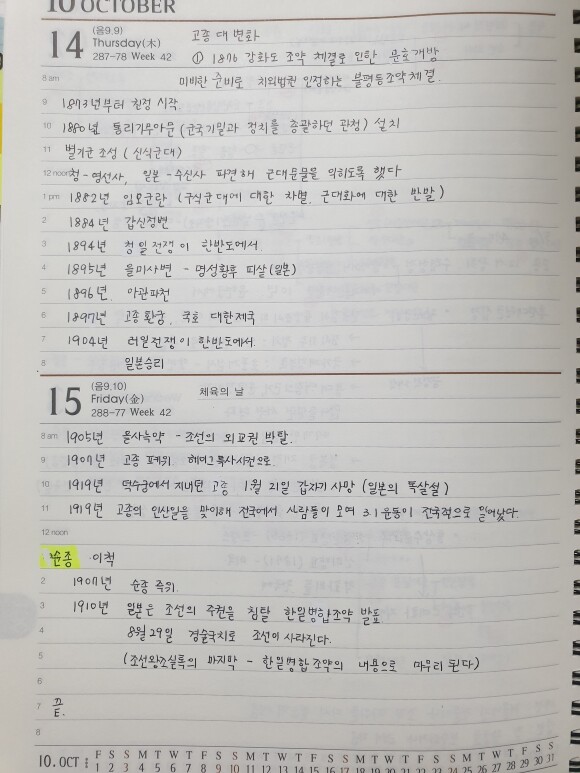 10 OCTOBER
14 (음9.9) Thursday(木) 287-78 Week 42
고종 대 변화
① 1876 강화도 조약 체결로 인한 문호개방
8 am 미비한 준비로 치외법권 인정하는 불평등조약 체결.
9 1873년부터 친정 시작
10 1880년 통리기무아문 (군국기밀과 정치를 총괄하던 관청) 설치
11 별기군 조성 (신식군대)
12 noon 청-영선사, 일본-수신사 파견해 근대문물을 익히도록 했다
1 pm 1882년 임오군란 (구식군대에 대한 차별, 근대화에 대한 반발)
2 1884년 갑신정변
3 1894년 청일전쟁이 한반도에서.
4 1895년 을미사변 - 명성황후 피살(일본)
5 1896년 아관파천
6 1897년 고종환궁, 국호 대한제국
7 1904년 러일전쟁이 한반도에서.
8 일본승리
15 (음9.10) Friday(金) 288-77 Week 42
체육의 날
8 am 1905년 을사늑약 - 조선의 외교권 박탈.
9 1907년 고종 폐위 헤이그특사사건으로
10 1919년 덕수궁에서 지내던 고종 1월 21일 갑자기 사망 (일본의 독살설)
11 1919년 고종의 인산일을 맞이해 전국에서 사람들이 모여 3.1운동이 전국적으로 일어났다.
12 noon
순종 이척
2 1907년 순종 즉위.
3 1910년 일본은 조선의 주권을 침탈 한일병합조약 발표
4 8월 29일 경술국치로 조선이 사라진다.
5 (조선왕조실록의 마지막 - 한일병합조약의 내용으로 마무리 된다)
6
7 끝.
8
10. OCT F S S M T W T F S S M T W T F S S M T W T F S S M T W T F S S
1 2 3 4 5 6 7 8 9 10 11 12 13 14 15 16 17 18 19 20 21 22 23 24 25 26 27 28 29 30 31